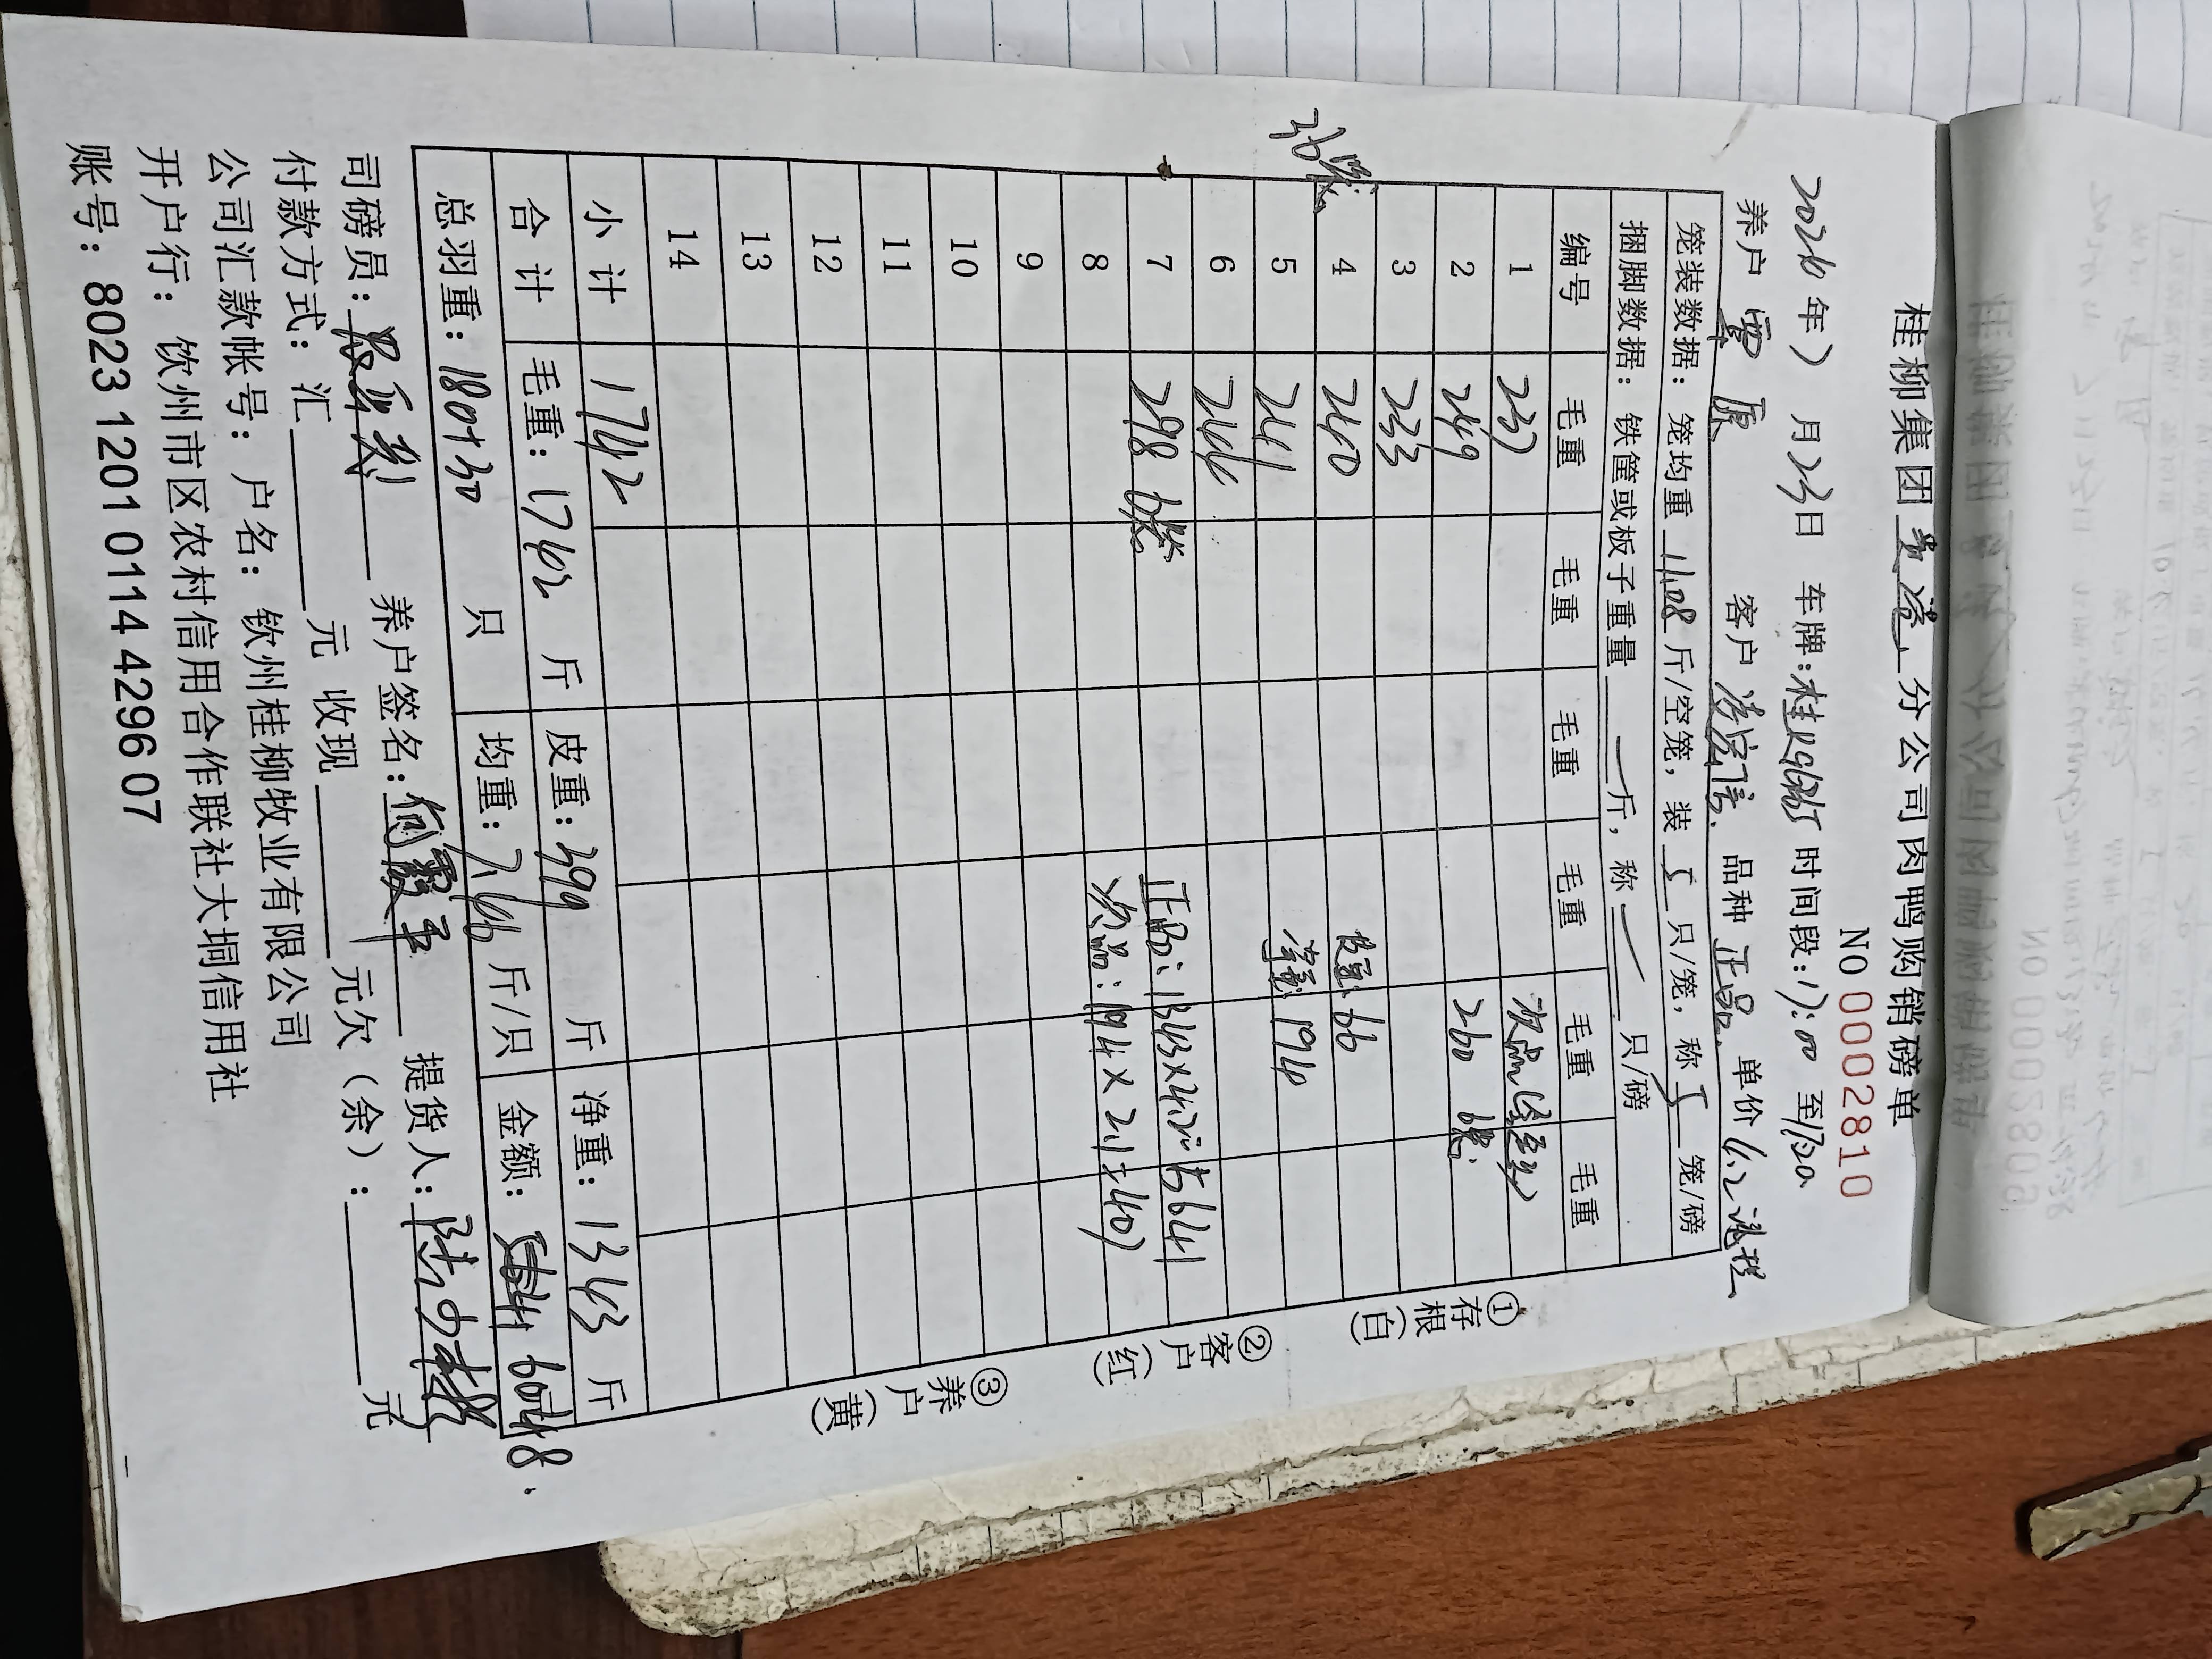 桂柳集团贵港分公司肉鸭购销磅单
NO 0002810
2026年1月23日 车牌:桂 时间段:17:00 至1720
养户 覃原 客户 凌宏信 品种 正品 单价 4.2 送程
笼装数据:笼均重 11.08 斤/空笼,装 5 只/笼,称 5 笼/磅
捆脚数据:铁筐或板子重量 — 斤,称 — 只/磅
编号 毛重 毛重 毛重 毛重 毛重 毛重
1 237 次品
2 249 260 6笼
3 233
4 240 皮重 66
5 241 净重 194
6 244
7 298 6笼 正品:1343×4.2=5641
8 次品:194×2.1=407
9
10
11
12
13
14
36笼
小计 1742
合计 毛重:1742 斤 皮重:399 斤 净重:1343 斤
总羽重:180+30 只 均重:7.46 斤/只 金额: 6048
司磅员: 养户签名: 提货人:
付款方式:汇 元 收现 元欠(余): 元
公司汇款帐号:户名:钦州桂柳牧业有限公司
开户行:钦州市区农村信用合作联社大垌信用社
账号:8023 1201 0114 4296 07
①存根(白)
②客户(红)
③养户(黄)